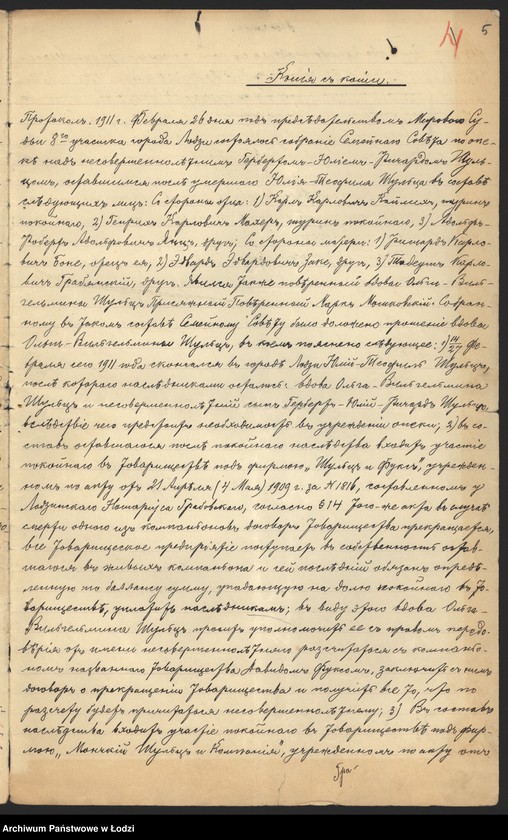 5
Копія съ копіи.
Протоколъ. 1911 г. Февраля 26 дня подъ предсѣдательствомъ Мирового Су-
дьи 8го участка города Лодзи состоялось собраніе Семейнаго Совѣта по опе-
кѣ надъ несовершеннолѣтнимъ Гербертомъ-Юліемъ-Ричардомъ Шуль-
цомъ, оставшимся послѣ умершаго Юлія-Теофила Шульца въ составѣ
слѣдующихъ лицъ: Со стороны отца: 1) Карлъ Карловичъ шуринъ
покойнаго, 2) Генрихъ Карловичъ шуринъ покойнаго, 3) Адольфъ-
Робертъ Адольфовичъ другъ; Со стороны матери: 1) Ричардъ Карло-
вичъ отецъ ея, 2) Эдвардъ Эдвардовичъ другъ, 3) Карло-
вичъ другъ. Явился также повѣренный вдовы Ольги-Виль-
гельмины Шульцъ Присяжный Повѣренный Маркъ Мошковскій. Собран-
ному въ такомъ составѣ Семейному Совѣту было доложено прошеніе вдовы
Ольги-Вильгельмины Шульцъ, въ коемъ пояснено слѣдующее: 1) 14/27 Фе-
враля сего 1911 года скончался въ городѣ Лодзи Юлій-Теофилъ Шульцъ,
послѣ котораго наслѣдниками остались: вдова Ольга-Вильгельмина
Шульцъ и несовершеннолѣтній сынъ Гербертъ-Юлій-Ричардъ Шульцъ,
вслѣдствіе чего предстоитъ необходимость въ учрежденіи опеки; 2) въ со-
ставъ оставшагося послѣ покойнаго наслѣдства входитъ участіе
покойнаго въ Товариществѣ подъ фирмою „Шульцъ и Фуксъ", учрежден-
номъ по акту отъ 21 Апрѣля (4 Мая) 1909 г. за N 1816, составленному у
Лодзинскаго Нотаріуса Грабовскаго, согласно § 14 того-же акта въ случаѣ
смерти одного изъ компаніоновъ договоръ Товарищества прекращается,
все Товарищеское предпріятіе поступаетъ въ собственность остав-
шагося въ живыхъ компаніона и сей послѣдній обязанъ опредѣ-
ленную по балансу сумму, упадающую на долю покойнаго въ То-
вариществѣ, уплатить наслѣдникамъ; въ виду этого вдова Ольга-
Вильгельмина Шульцъ проситъ уполномочить ее съ правомъ передо-
вѣрія отъ имени несовершеннолѣтняго разсчитаться съ компаніо-
номъ названнаго Товарищества Давидомъ Фуксомъ, заключить съ нимъ
договоръ о прекращеніи Товарищества и получить все то, что по
разсчету будетъ причитаться несовершеннолѣтнему; 3) Въ составъ
наслѣдства входитъ участіе покойнаго въ Товариществѣ подъ фир-
мою „ Шульцъ и Компанія", учрежденномъ по акту отъ
Archiwum Państwowe w Łodzi